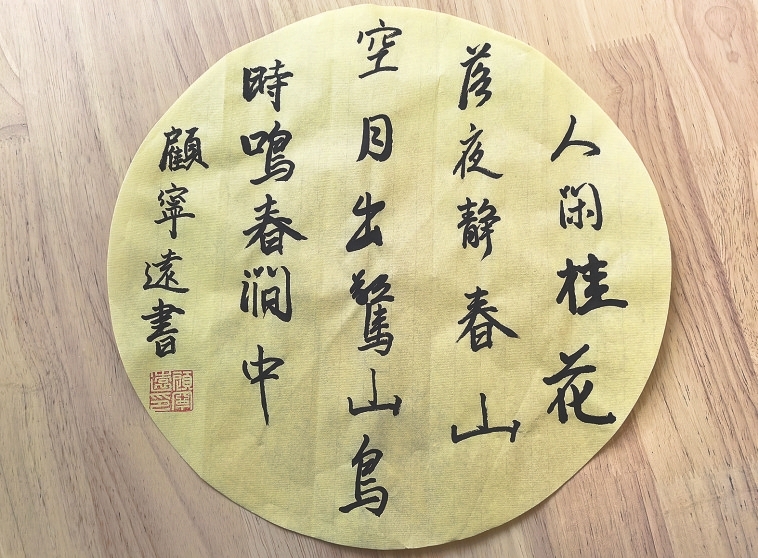 人閑桂花
落夜静春山
空月出驚山鳥
時鳴春澗中
顧寧遠書